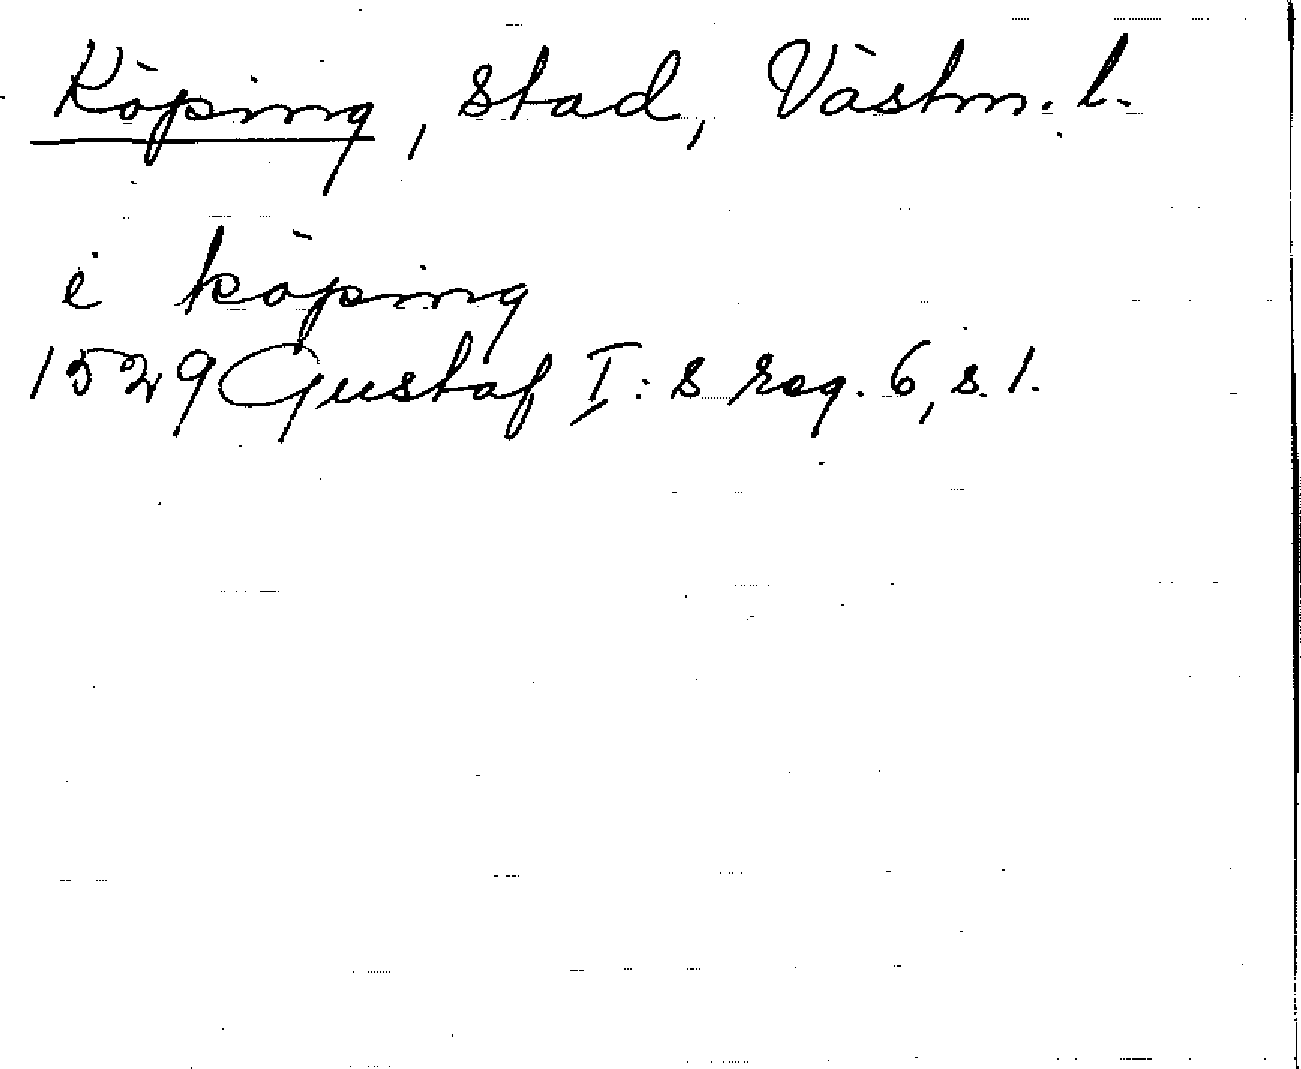 Köping, Stad, Västm. l.
i köping
1529 Gustaf I:s reg. 6, s. 1.